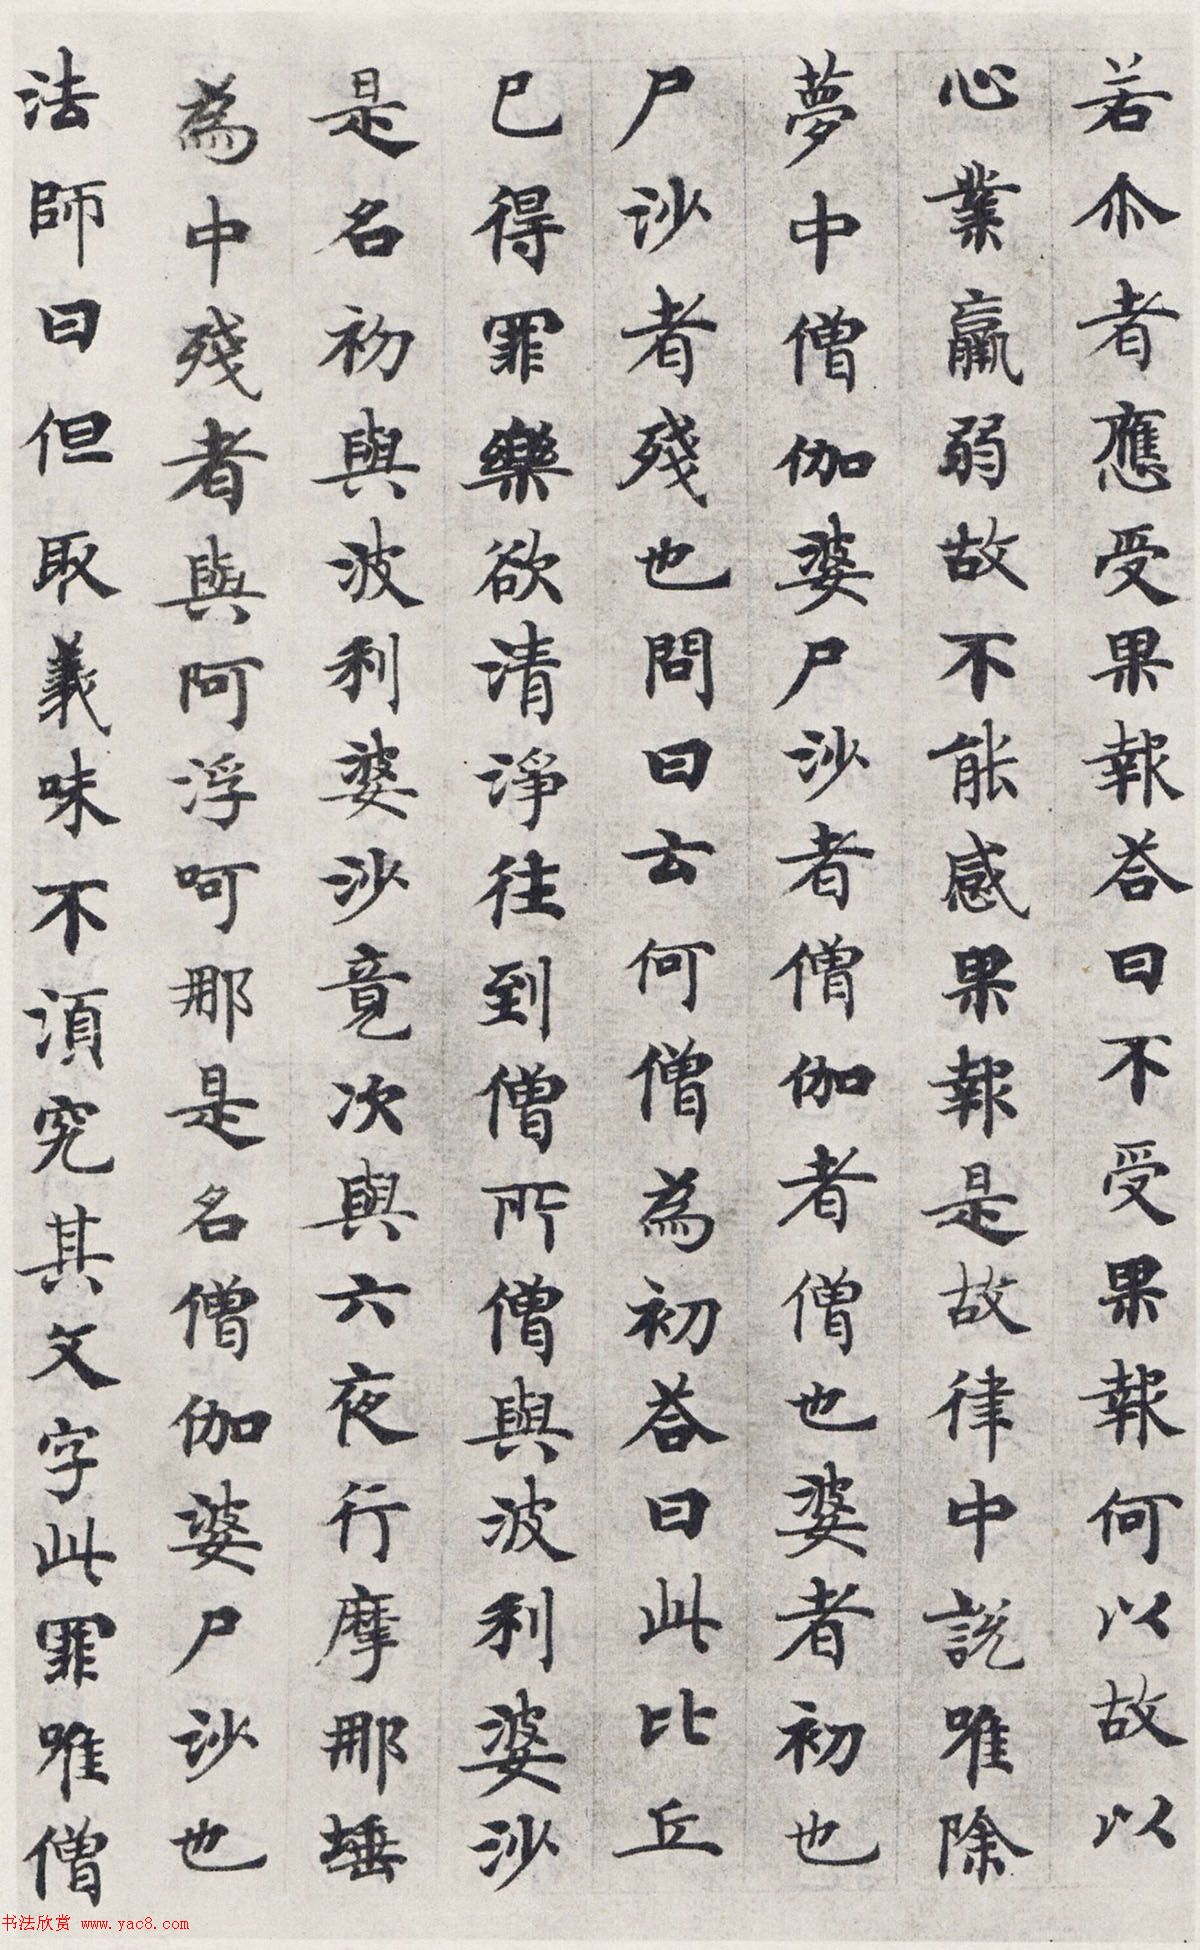 若尒者應受果報荅曰不受果報何以故以
心業羸弱故不能感果報是故律中説唯除
夢中僧伽婆尸沙者僧伽者僧也婆者初也
尸沙者殘也問曰云何僧為初荅曰此比丘
已得罪樂欲清淨往到僧所僧與波利婆沙
是名初與波利婆沙竟次與六夜行摩那埵
為中殘者與阿浮呵那是名僧伽婆尸沙也
法師曰但取義味不湏究其文字此罪唯僧
书法欣赏 www.yac8.com